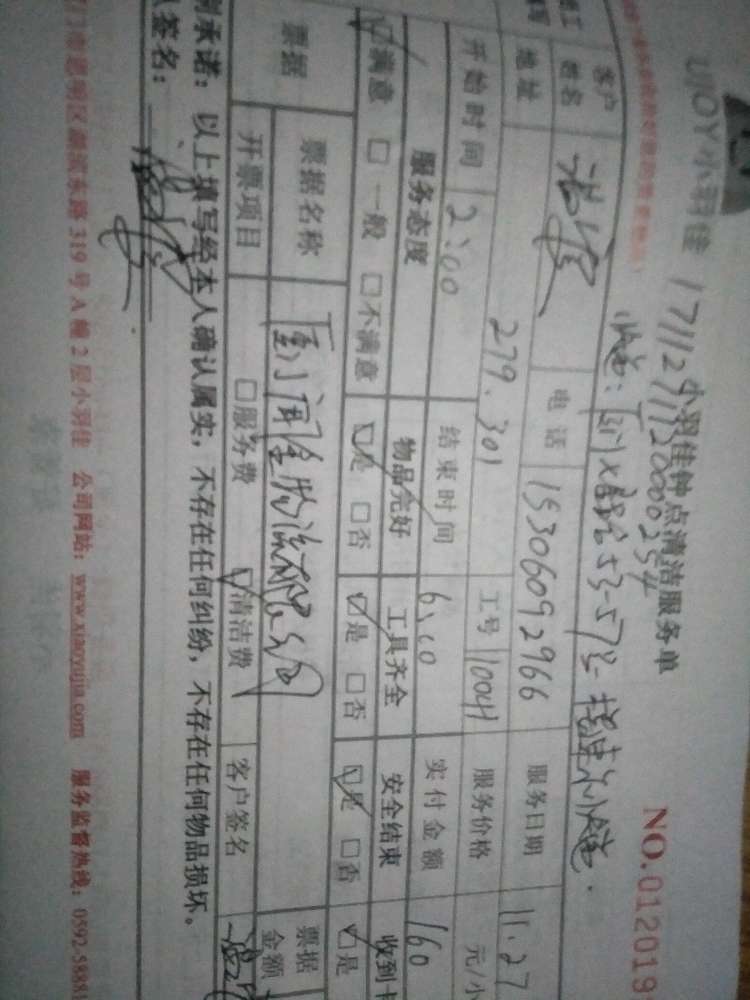 NO.012019
UIOY小羽佳 1711271130000254
小羽佳钟点清洁服务单
客户
姓名
电话 15306092966
服务日期 11.27
地址
279.301
工号 10041
服务价格
元/小
开始时间 2:00
结束时间 6:00
实付金额 160
服务态度
物品完好
工具齐全
安全结束
收到卡
☑满意 □一般 □不满意
☑是 □否
☑是 □否
☑是 □否
☑是
票据
票据名称
票据
金额
开票项目
□服务费
☑清洁费
客户签名
承诺：以上填写经本人确认属实，不存在任何纠纷，不存在任何物品损坏。
签名：
门市思明区湖滨东路319号A幢2层小羽佳 公司网站：www.xiaoyujia.com 服务监督热线：0592-58881